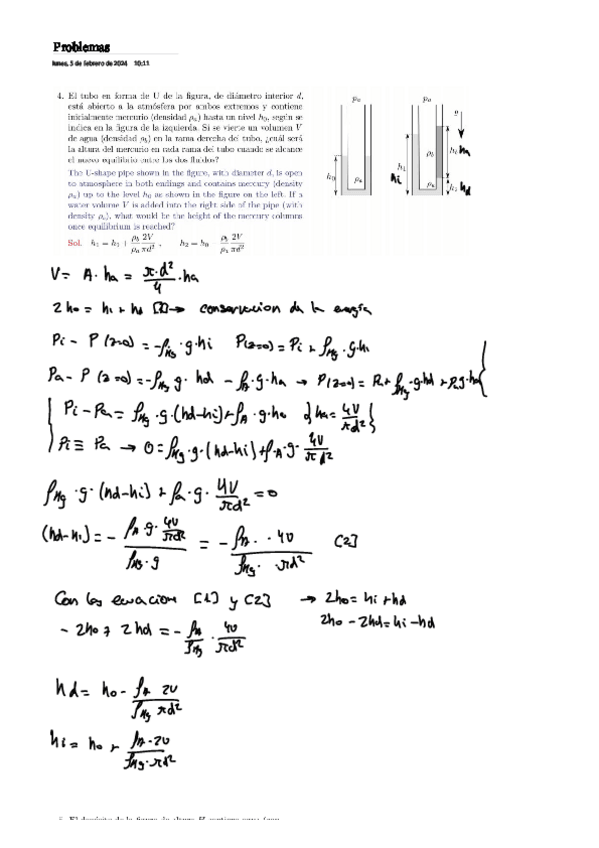 Problemas
lunes, 5 de febrero de 2024 10:11
4. El tubo en forma de U de la figura, de diámetro interior d,
está abierto a la atmósfera por ambos extremos y contiene
inicialmente mercurio (densidad ρa) hasta un nivel h0, según se
indica en la figura de la izquierda. Si se vierte un volumen V
de agua (densidad ρb) en la rama derecha del tubo, ¿cuál será
la altura del mercurio en cada rama del tubo cuando se alcance
el nuevo equilibrio entre los dos fluidos?
The U-shape pipe shown in the figure, with diameter d, is open
to atmosphere in both endings and contains mercury (density
ρa) up to the level h0 as shown in the figure on the left. If a
water volume V is added into the right side of the pipe (with
density ρb), what would be the height of the mercury columns
once equilibrium is reached?
Sol. h1 = h0 + ρb 2V / ρa πd² , h2 = h0 − ρb 2V / ρa πd²
pa
h0
ρa
pa
g
h1
hi
ρb
ρa
ha
hd
V = A · ha = π·d²/4 · ha
2ho = hi + hd [1] → conservacion de la energía
Pi − P(z=0) = −ρHg · g · hi P(z=0) = Pi + ρHg · g · hi
Pa − P(z=0) = −ρHg g · hd − ρA · g · ha → P(z=0) = Pa + ρHg · g · hd + ρA g · ha
Pi − Pa = ρHg · g · (hd−hi) + ρA · g · ha {ha = 4V/πd²}
Pi ≡ Pa → 0 = ρHg · g · (hd−hi) + ρA · g · 4V/πd²
ρHg · g · (hd−hi) + ρa · g · 4V/πd² = 0
(hd−hi) = − ρA g · 4V/πd² / ρHg · g = − ρA · 4V / ρHg · πd² [2]
Con las ecuacion [1] y [2] → 2ho = hi + hd
2ho − 2hd = hi − hd
− 2ho + 2hd = − ρA/ρHg · 4V/πd²
hd = ho − ρA 2V / ρHg πd²
hi = ho + ρA · 2V / ρHg · πd²